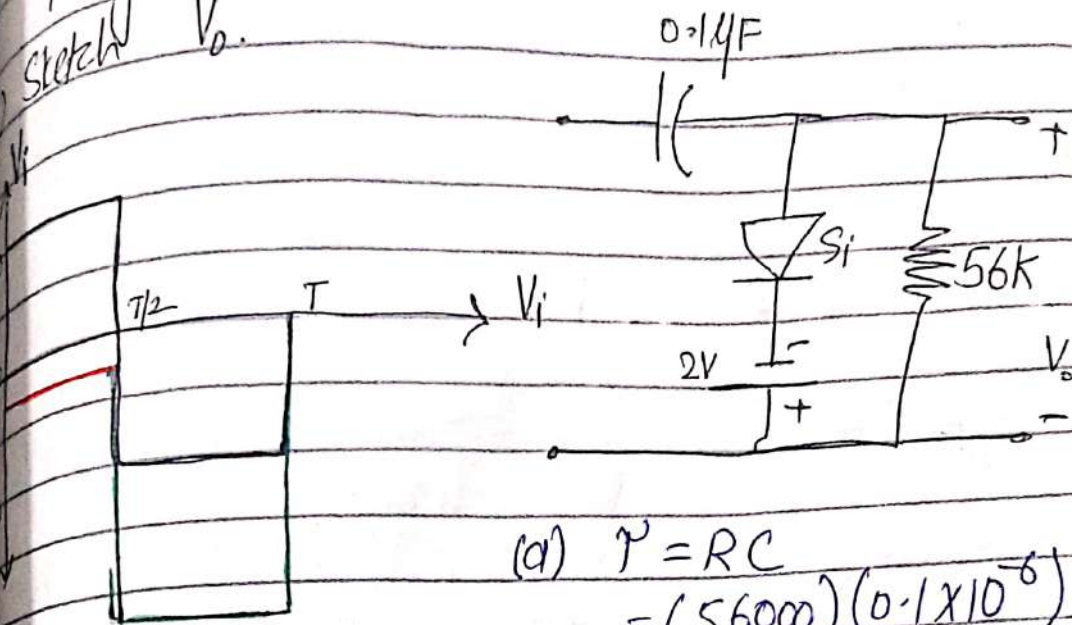 Sketch V₀.
0.1µF
Vi
T/2 T Vi
Si
56K
2V -
+
+
V₀
-
(a) τ = RC
= (56000)(0.1×10⁻⁶)